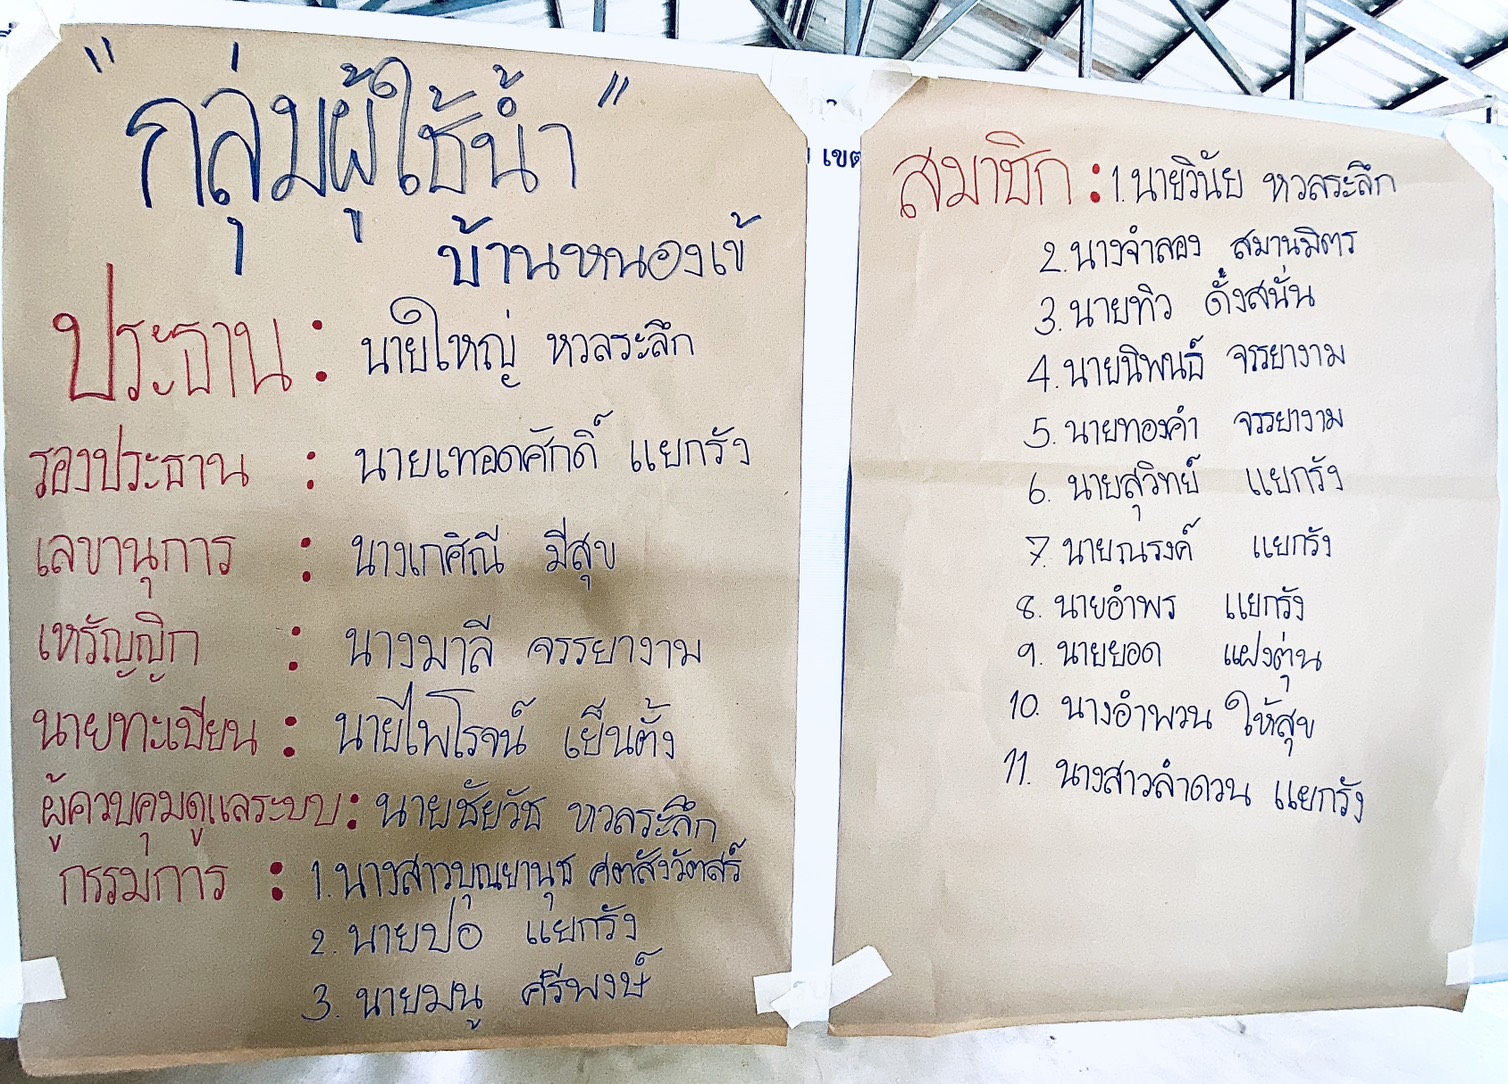 "กลุ่มผู้ใช้น้ำ"
บ้านหนองเข้
ประธาน : นายใหญ่ หวลระลึก
รองประธาน : นายเทอดศักดิ์ แยกรัง
เลขานุการ : นางเกศิณี มีสุข
เหรัญญิก : นางมาลี จรรยางาม
นายทะเบียน : นายไพโรจน์ เย็นตั้ง
ผู้ควบคุมดูแลระบบ : นายชัยวัช หวลระลึก
กรรมการ : 1. นางสาวบุณยานุช ศตสังวัตสร์
2. นายปอ แยกรัง
3. นายมนู ศรีพงษ์
เขต
สมาชิก : 1. นายวินัย หวลระลึก
2. นางจำลอง สมานมิตร
3. นายทิว ดั้งสนั่น
4. นายนิพนธ์ จรรยางาม
5. นายทองคำ จรรยางาม
6. นายสุวิทย์ แยกรัง
7. นายณรงค์ แยกรัง
8. นายอำพร แยกรัง
9. นายยอด แฝงตุ่น
10. นางอำพวน ให้สุข
11. นางสาวลำดวน แยกรัง